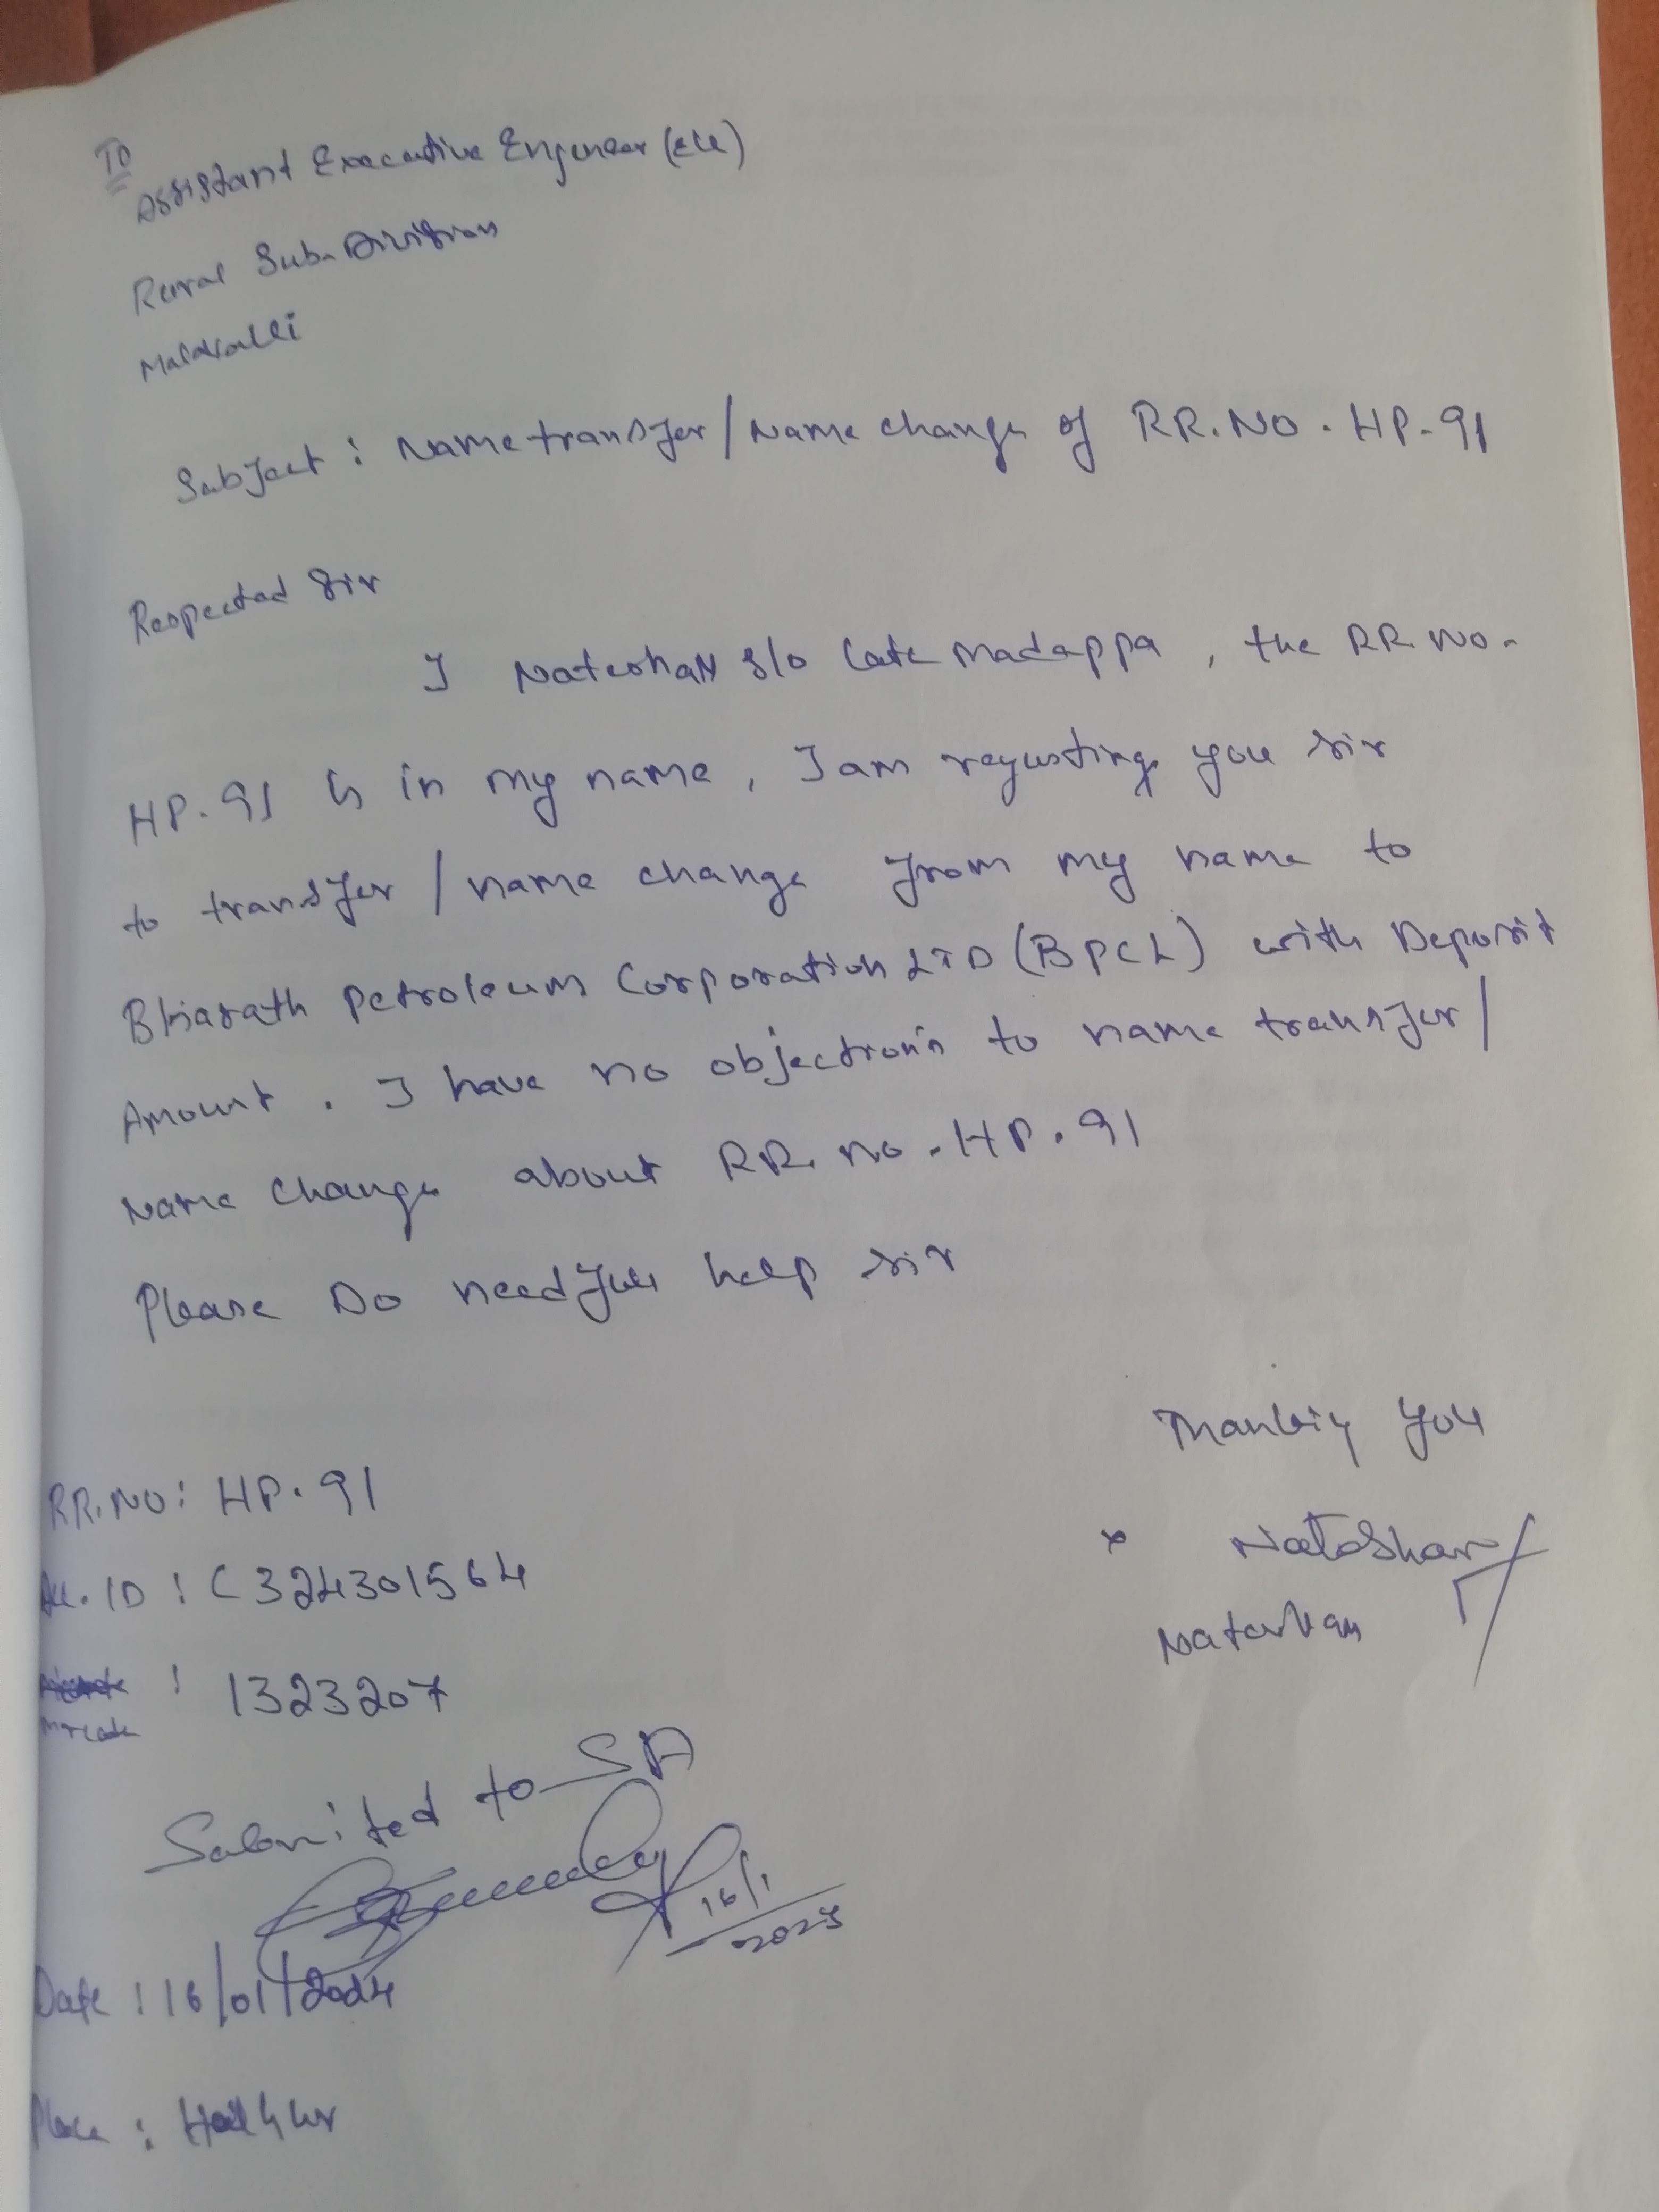 To
Assistant Executive Engineer (ele)
Rural Sub-Division
Malavalli
Subject : Name transfer / Name change of RR.NO. HP-91
Respected Sir
I Nateshan s/o Late Madappa, the RR No.
HP.91 is in my name, I am requsting you sir
to transfer / name change from my name to
Bharath Petroleum Corporation LTD (BPCL) with Deposit
Amount. I have no objection's to name transfer /
Name change about RR. no. HP. 91
Please Do needful help sir
Thanking You
Nateshan
Nateshan
RR.NO: HP. 91
Ac. ID : C 324301564
Mr code : 1323207
Submited to SA
16/1
Date : 16/01/2024
Place :